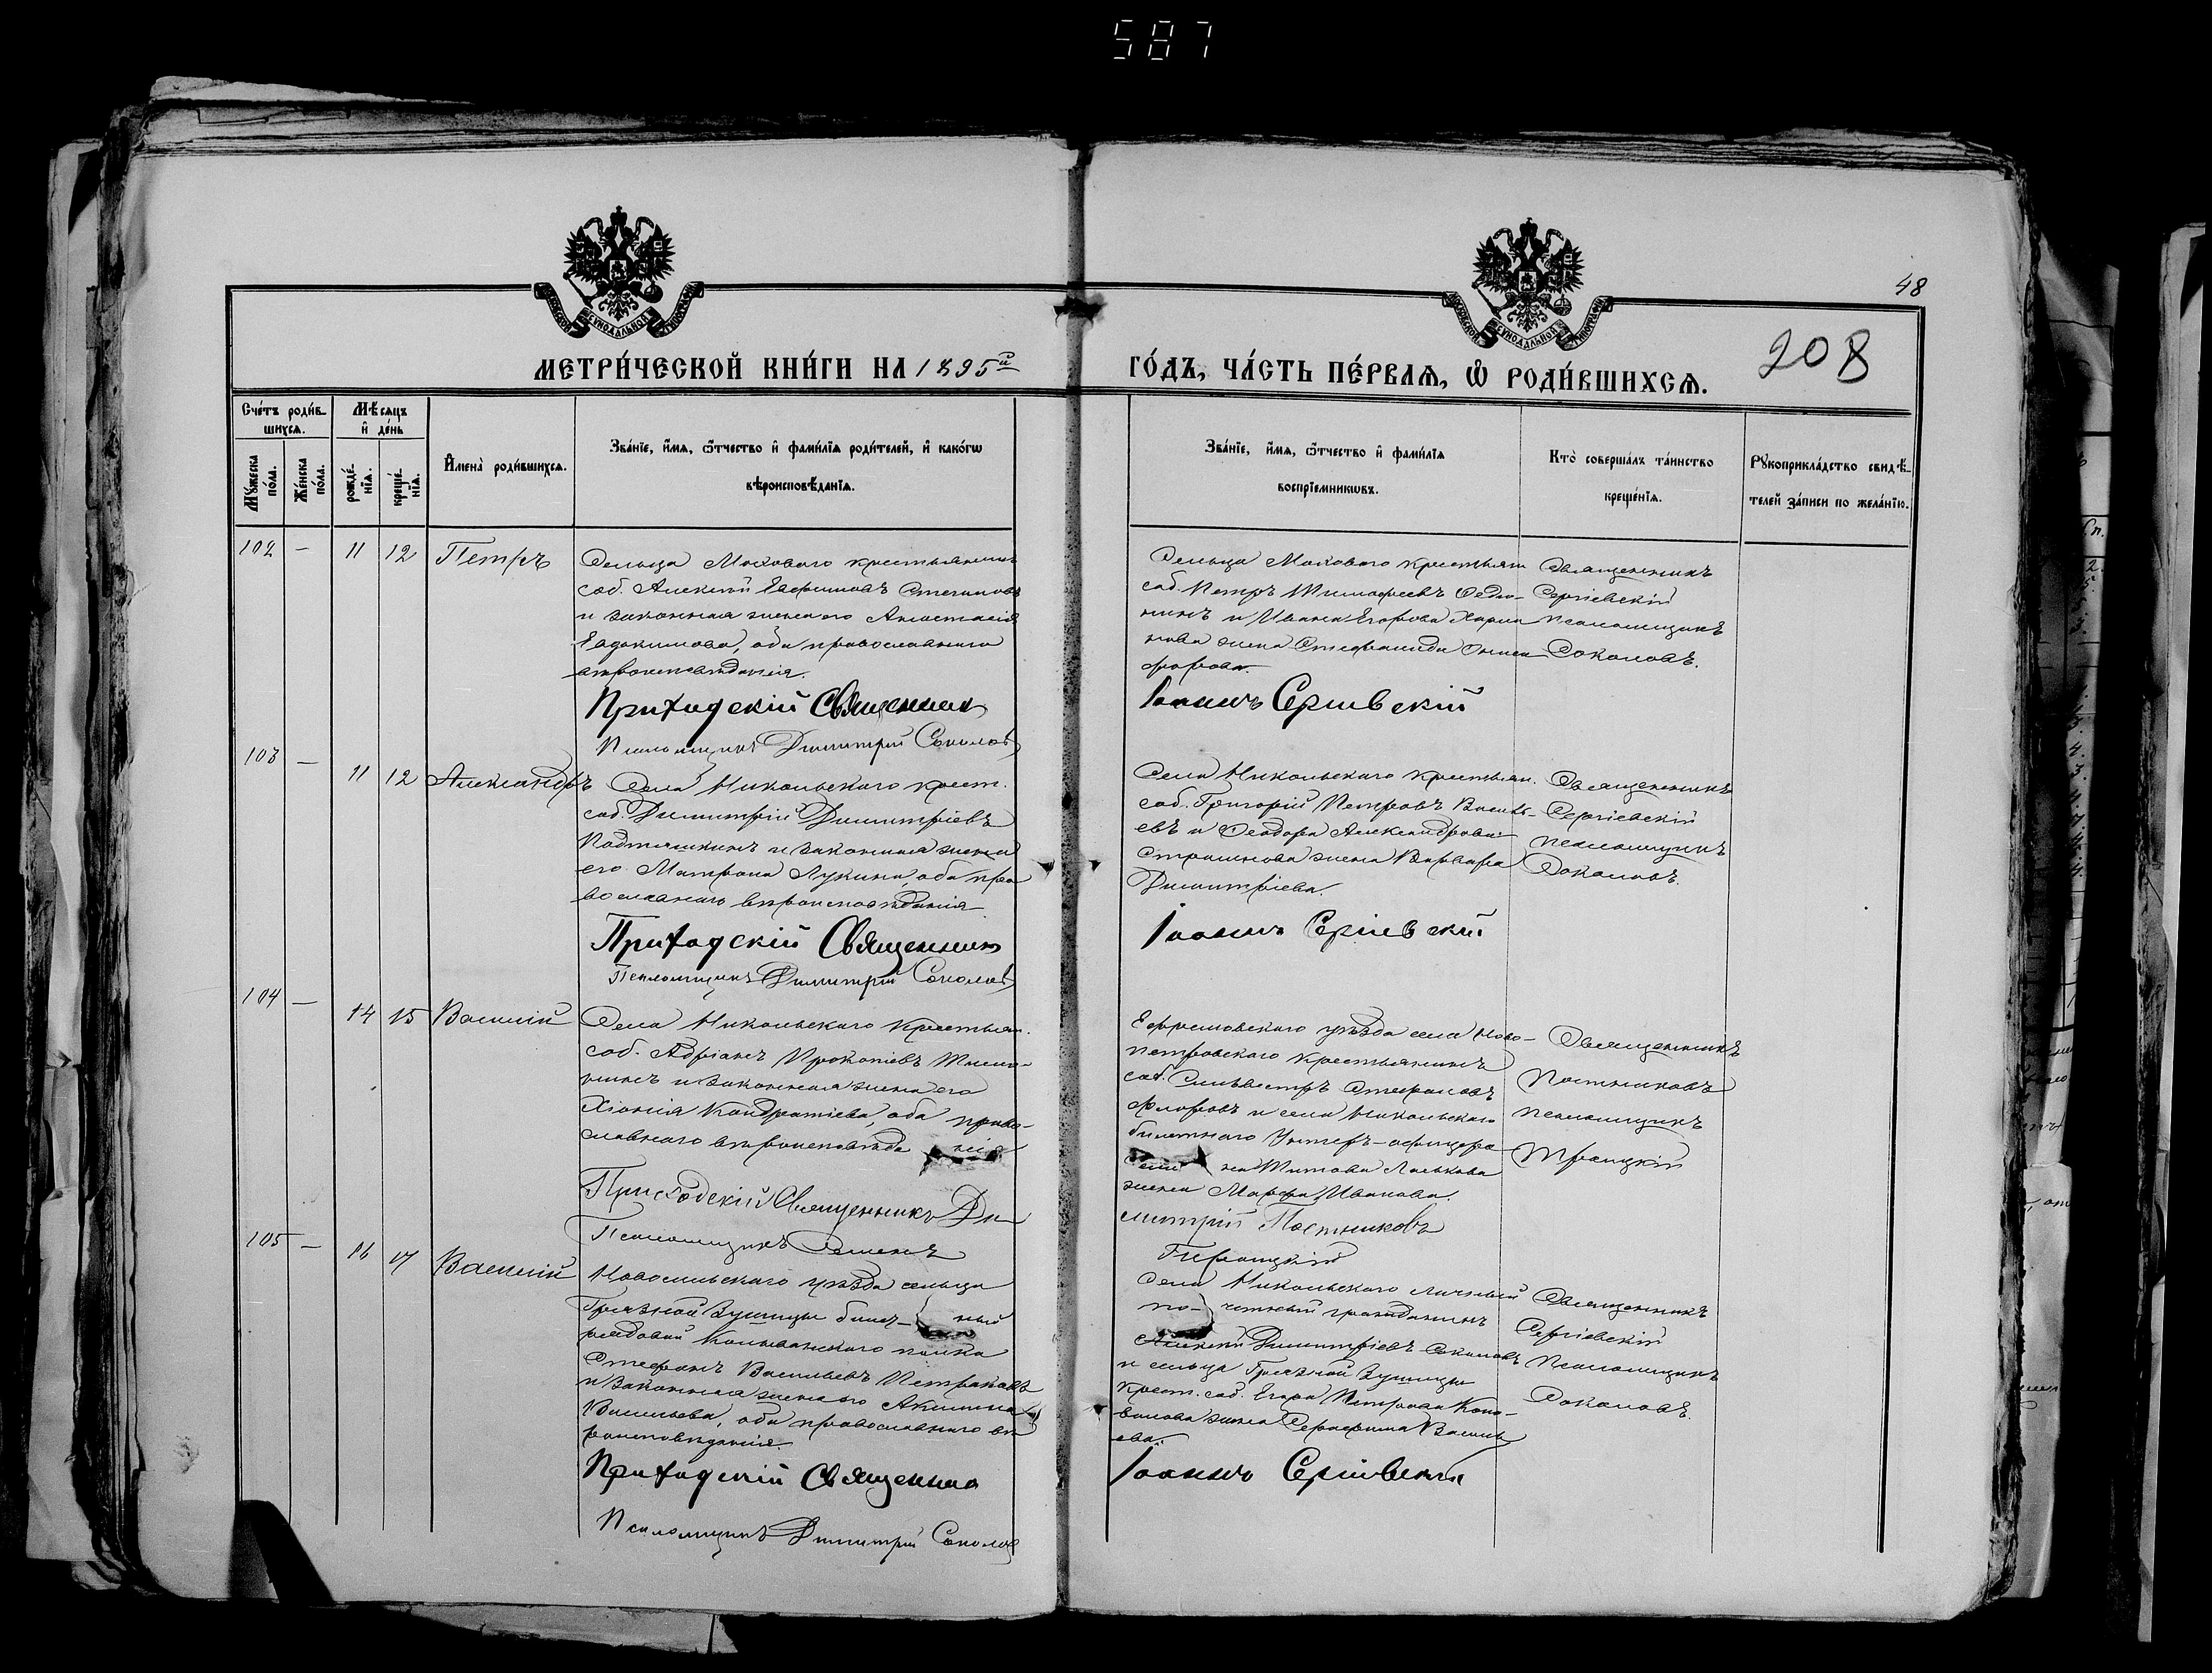 587
48
208
МЕТРИ́ЧЕСКОЙ КНИ́ГИ НА 1895й
ГО́ДЪ, ЧА́СТЬ ПЕ́РВАѦ, Ѡ҆ РОДИ́ВШИХСѦ.
Сче́тъ роди́в-
шихсѧ.
Мꙋ́жеска по́ла.
Же́нска по́ла.
Мѣ́сѧцъ и҆ де́нь
рожде́-
нїѧ.
креще́-
нїѧ.
И҆мена̀ роди́вшихсѧ.
Зва́нїе, и҆́мѧ, ѻ҆́тчество и҆ фами́лїѧ роди́телей, и҆ како́гѡ
вѣроисповѣ́данїѧ.
Зва́нїе, и҆́мѧ, ѻ҆́тчество и҆ фами́лїѧ
воспрїемникѡвъ.
Кто̀ соверша́лъ та́инство
креще́нїѧ.
Рꙋкоприкла́дство свидѣ́-
телей за́писи по жела́нїю.
102 — 11 12 Петръ
Сельца Моховаго крестьянинъ
соб. Алексѣй Евфимовъ Степановъ
и законная жена его Анастасія
Евдокимова, оба православнаго
вѣроисповѣданія.
Приходскій Священник
Псаломщикъ Димитрій Соколовъ
Сельца Моховаго крестьян
соб. Петръ Тимофеевъ Федо-
нинъ и Ивана Егорова Харла
нова жена Стефанида Ониси
форова.
Іоаннъ Сергіевскій
Священникъ
Сергіевскій
псаломщикъ
Соколовъ.
103 — 11 12 Александръ
Села Никольскаго крест.
соб. Димитрій Димитріевъ
Подтяжкинъ и законная жена
его Матрона Лукина, оба пра
вославнаго вѣроисповѣданія
Приходскій Священник
Псаломщикъ Димитрій Соколовъ
Села Никольскаго крестьян.
соб. Григорій Петровъ Василь-
евъ и Феодора Александрова
Страшнова жена Варвара
Димитріева.
Іоаннъ Сергіевскій
Священникъ
Сергіевскій
псаломщикъ
Соколовъ.
104 — 14 15 Василій
Села Никольскаго крестьян.
соб. Адріанъ Прокопіевъ
и законная жена его
Хіонія Кондратіева, оба право-
славнаго вѣроисповѣда нія
Приходскій Священникъ Ди
Псаломщикъ Семенъ
Ефремовскаго уѣзда села Ново-
петровскаго крестьянинъ
соб. Сильвестръ Стефановъ
Фроловъ и села Никольскаго
билетнаго Унтеръ-офицера
на Титова Лалькова
жена Марфа Иванова.
митрій Постниковъ
Троицкій
Священникъ
Постниковъ
псаломщикъ
Троицкій
105 — 16 17 Василій
Новосильскаго уѣзда сельца
Грязной Зушицы билет- ный
рядовой Колыванскаго полка
Стефанъ Васильевъ Петраковъ
и законная жена его Акилина
Васильева, оба православнаго вѣ
роисповѣданія.
Приходскій Священник
Псаломщикъ Димитрій Соколовъ
Села Никольскаго личный
по- четный гражданинъ
Алексѣй Димитріевъ Соколовъ
и сельца Грязной Зушицы
крест. соб. Егора Петрова Коно-
валова жена Серафима Василь
ева.
Іоаннъ Сергіевскій
Священникъ
Сергіевскій
Псаломщикъ
Соколовъ.